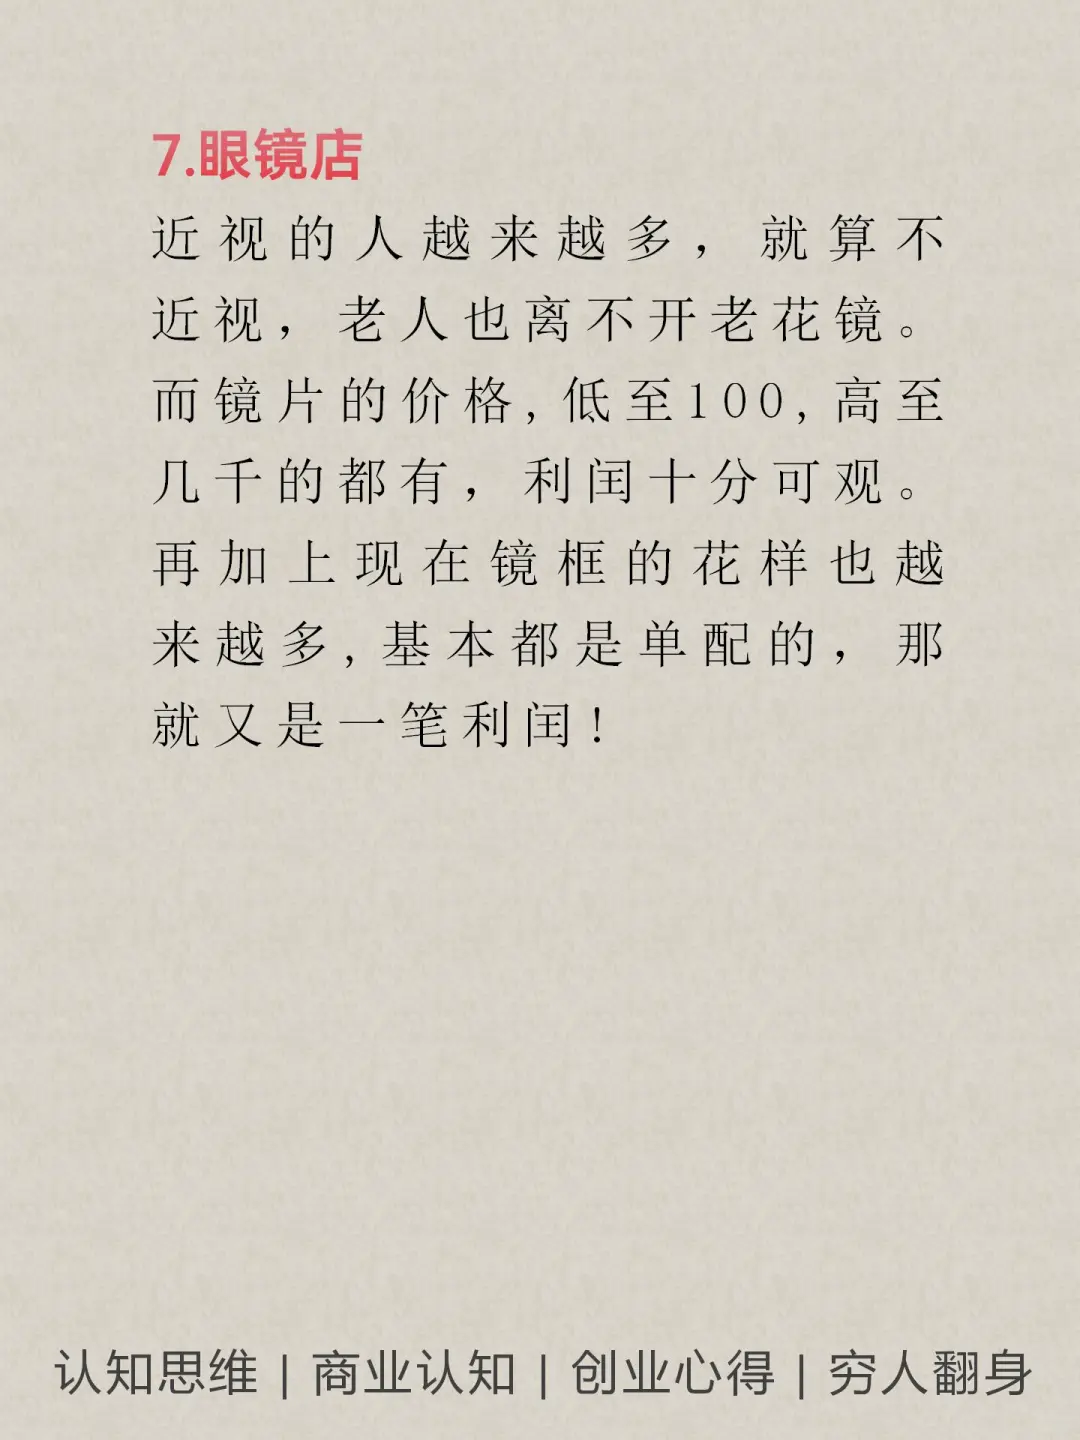 7.眼镜店
近视的人越来越多，就算不
近视，老人也离不开老花镜。
而镜片的价格,低至100,高至
几千的都有，利闰十分可观。
再加上现在镜框的花样也越
来越多,基本都是单配的，那
就又是一笔利闰!
认知思维 | 商业认知 | 创业心得 | 穷人翻身